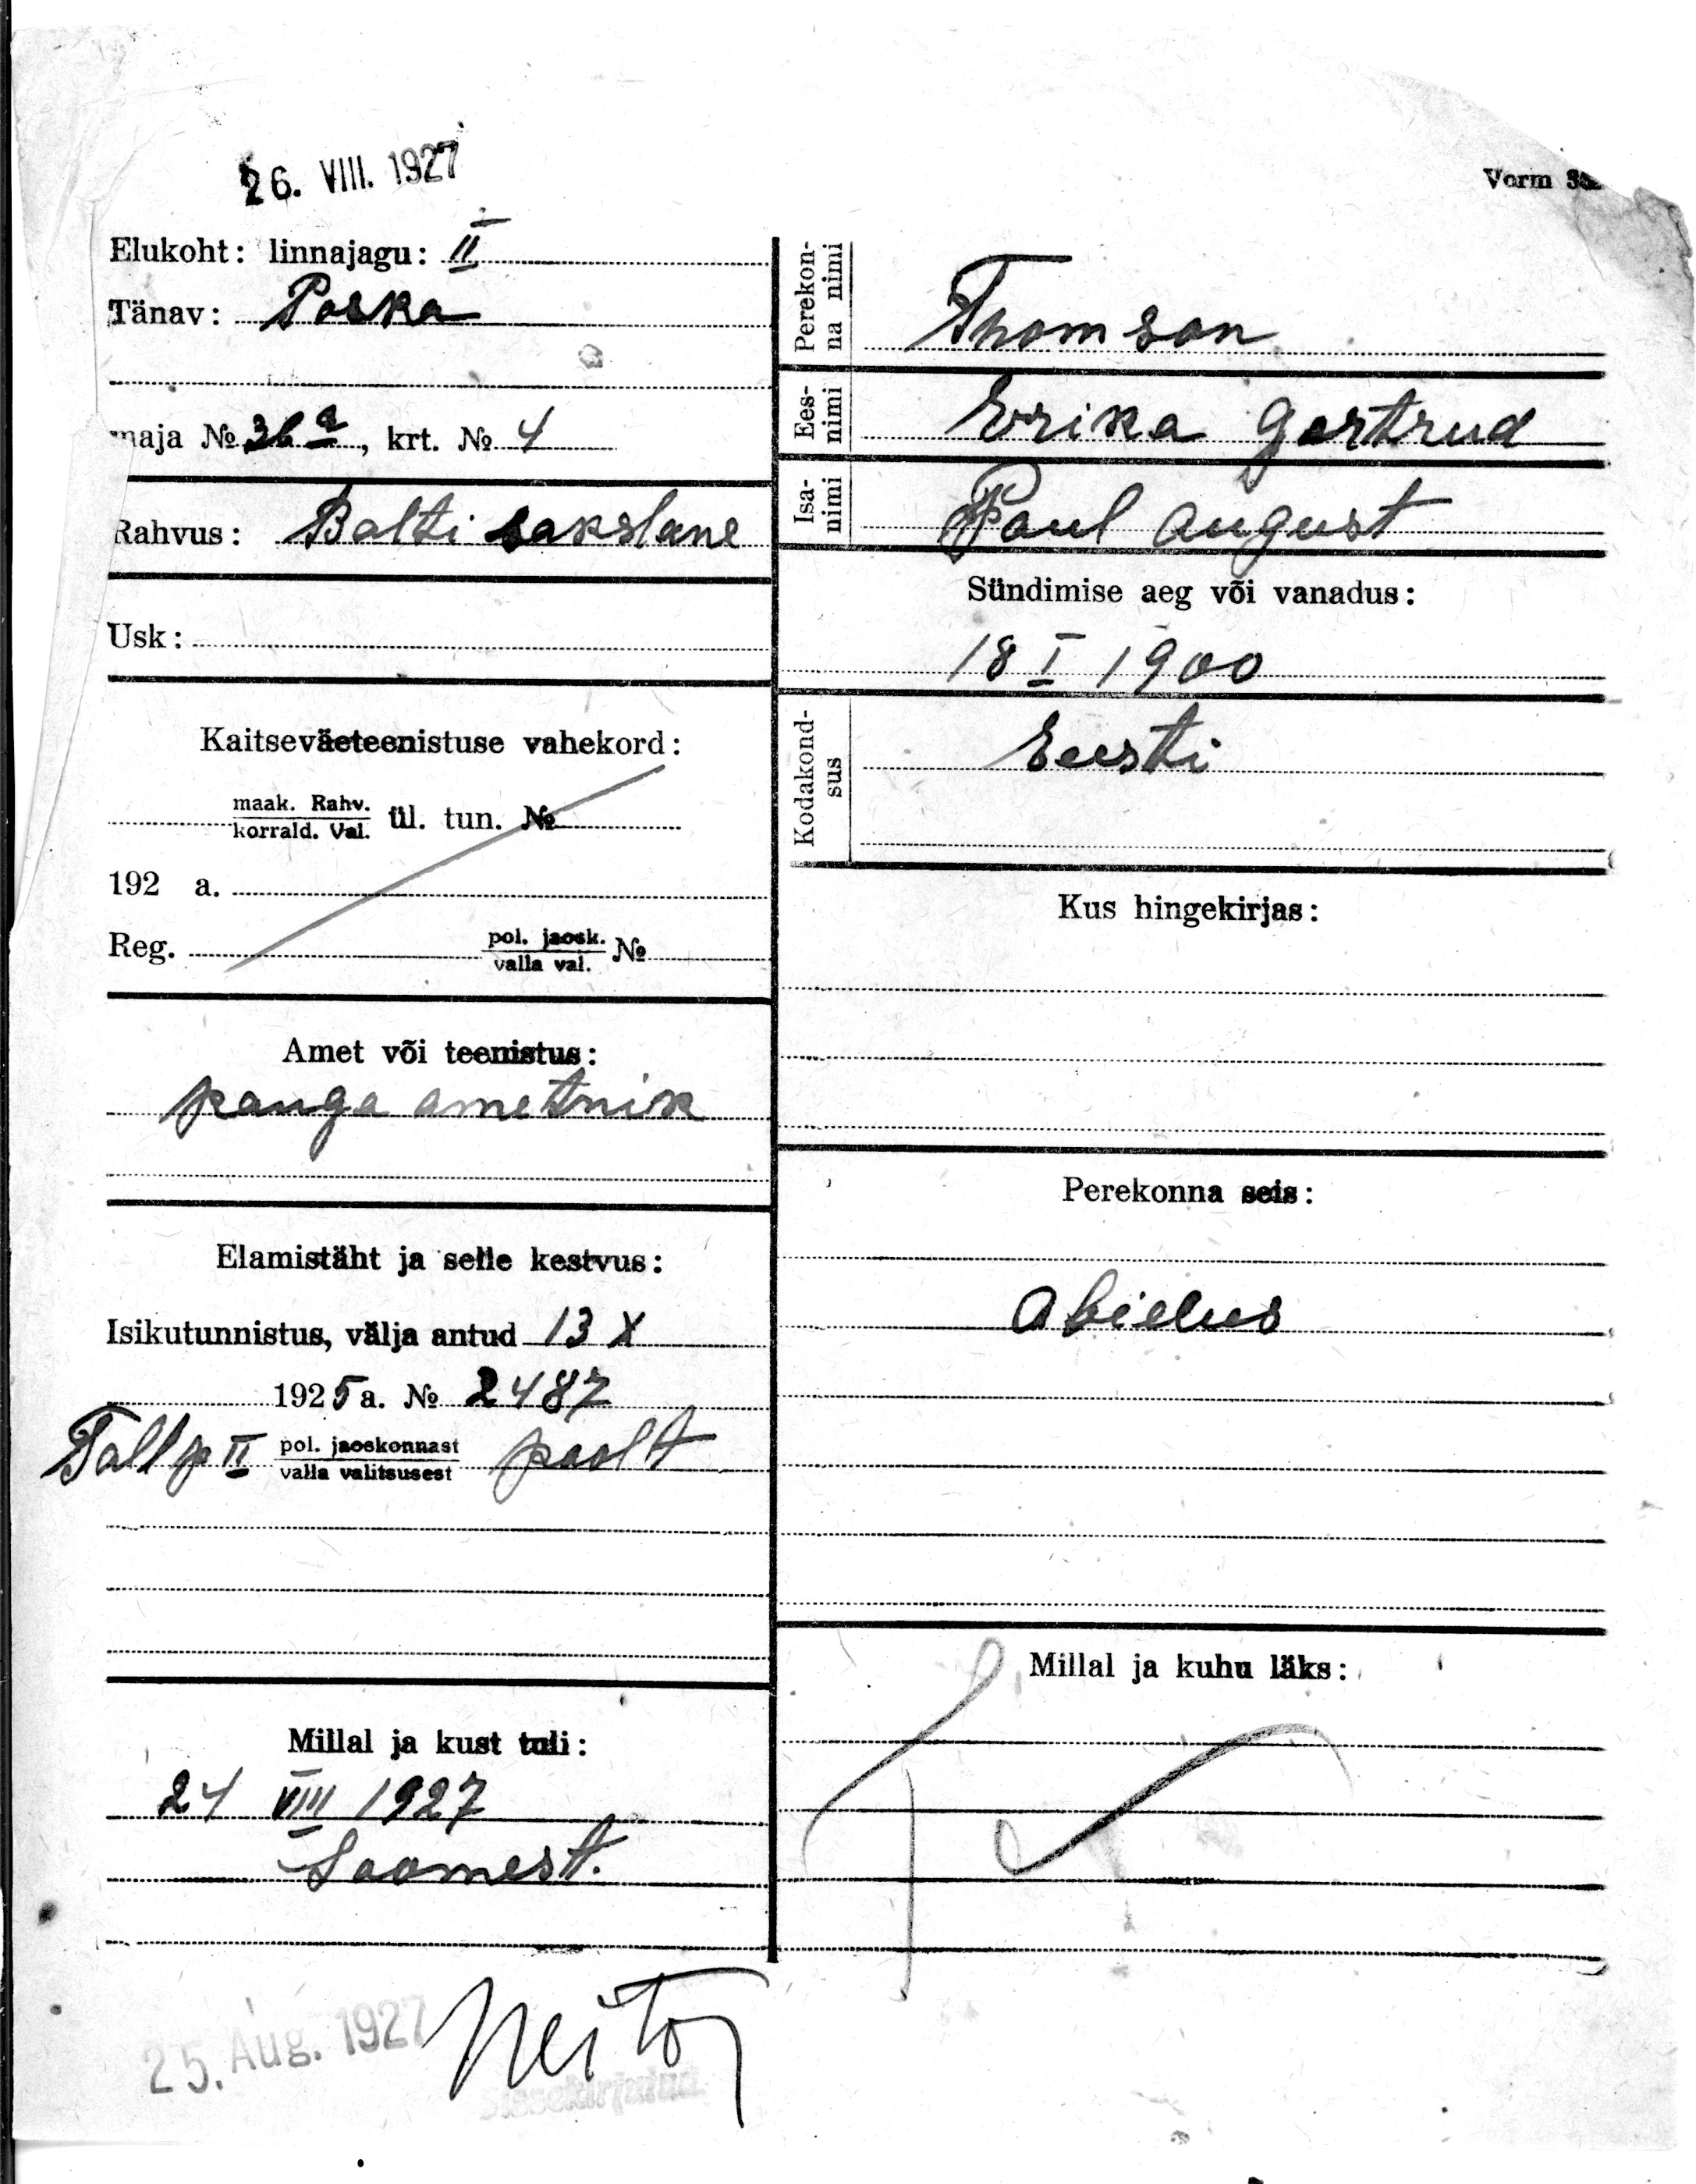 26. VIII. 1927
Vorm
Elukoht: linnajagu: II
Tänav: Poska
maja № 36a, krt. № 4
Rahvus: Balti sakslane
Usk:
Kaitseväeteenistuse vahekord:
maak. Rahv.
korrald. Val. ül. tun. №
192 a.
Reg. pol. jaosk. №
valla val.
Amet või teenistus:
panga ametnik
Elamistäht ja selle kestvus:
Isikutunnistus, välja antud 13 X
1925 a. № 2487
Tall p II pol. jaoskonnast poolt
valla valitsusest
Millal ja kust tuli:
24 VIII 1927
Soomest.
Perekonna nimi
Thomson
Eesnimi
Erika Gertrud
Isanimi
Paul August
Sündimise aeg või vanadus:
18 I 1900
Kodakondsus
Eesti
Kus hingekirjas:
Perekonna seis:
Abielus
Millal ja kuhu läks:
25. Aug. 1927
Sissekirjutud